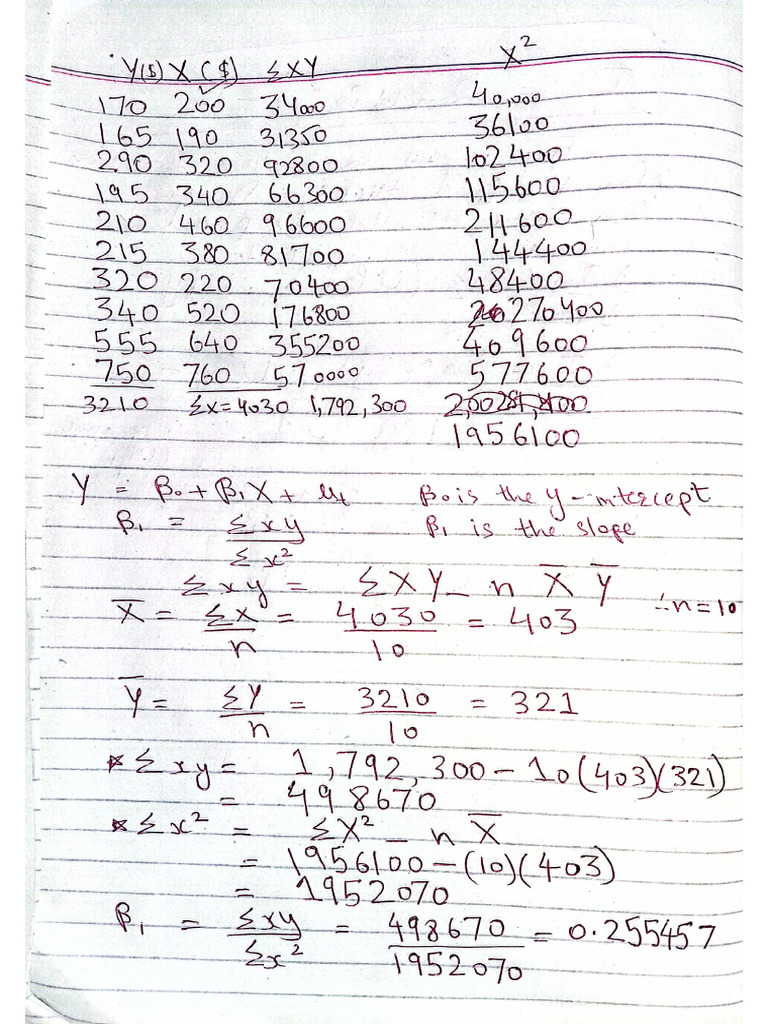 Y($) X ($) ΣXY X²
170 200 34000 40,000
165 190 31350 36100
290 320 92800 102400
195 340 66300 115600
210 460 96600 211600
215 380 81700 144400
320 220 70400 48400
340 520 176800 270400
555 640 355200 409600
750 760 570000 577600
3210 Σx=4030 1,792,300
1956100
Y = β₀ + β₁X + μₜ β₀ is the y-intercept
β₁ = Σxy / Σx² β₁ is the slope
Σxy = ΣXY - n X̄ Ȳ ∴n=10
X̄ = ΣX / n = 4030 / 10 = 403
Ȳ = ΣY / n = 3210 / 10 = 321
* Σxy = 1,792,300 - 10(403)(321)
= 498670
* Σx² = ΣX² - n X̄
= 1956100 - (10)(403)
= 1952070
β₁ = Σxy / Σx² = 498670 / 1952070 = 0.255457